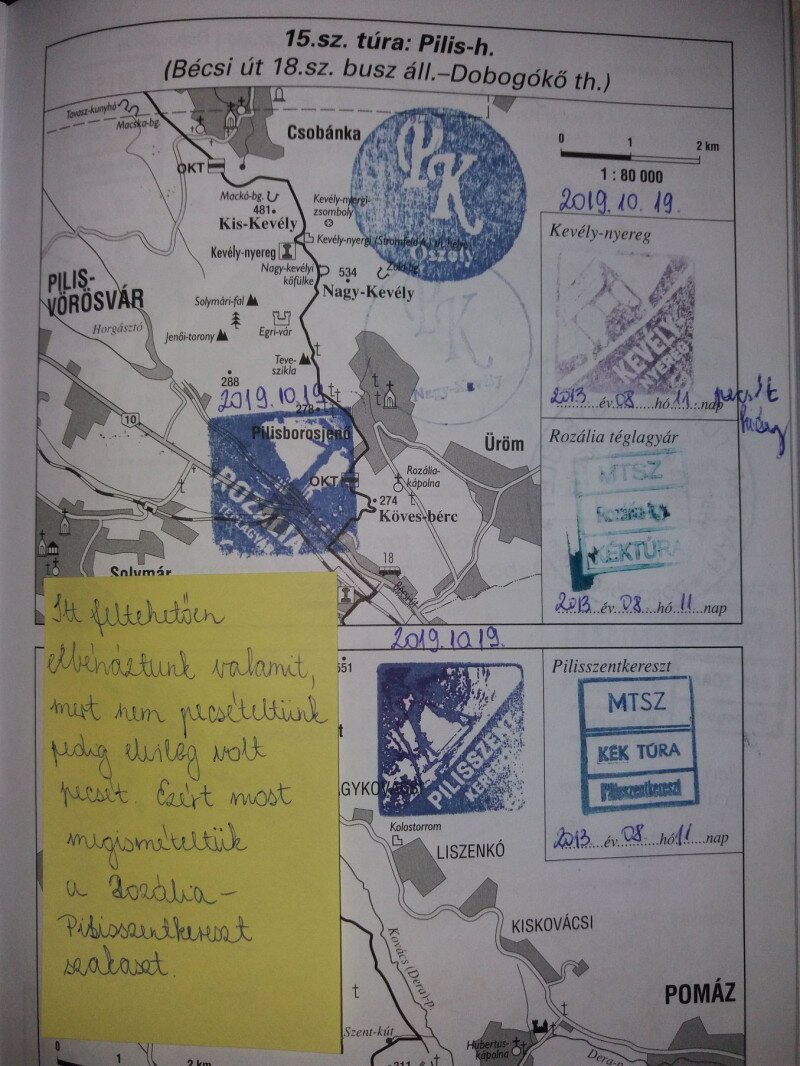 15.sz. túra: Pilis-h.
(Bécsi út 18.sz. busz áll.–Dobogókő th.)
Tavasz-kunyhó
Macska-bg.
Csobánka
PK
Oszoly
0 1 2 km
1 : 80 000
OKT
2019.10.19.
Mackó-bg.
481
Kis-Kevély
Kevély-nyergi-
zsomboly
Kevély-nyereg
Kevély-nyereg
Kevély-nyergi (Stromfeld A.) th. helye
Nagy-kevélyi
kőfülke
534
Nagy-Kevély
PILIS-
VÖRÖSVÁR
Horgásztó
Solymári-fal
Jenői-torony
Egri-vár
Teve-
szikla
PK
Nagy-Kevély
KEVÉLY
NYEREG
2013 év 08 hó 11 nap
pecsét
288
2019.10.19
278
10
Pilisborosjenő
ROZÁLIA
TÉGLAGYÁR
OKT
Rozália-
kápolna
Üröm
274
Köves-bérc
Rozália téglagyár
MTSZ
KÉKTÚRA
2013 év 08 hó 11 nap
18
Solymár
Itt feltehetően
elbénáztunk valamit,
mert nem pecsételtünk
pedig elvileg volt
pecsét. Ezért most
megismételtük
a Rozália–
Pilisszentkereszt
szakaszt.
2019.10.19.
551
PILISSZENT
KERESZT
Pilisszentkereszt
MTSZ
KÉK TÚRA
Pilisszentkereszt
2013 év 08 hó 11 nap
Kolostorrom
LISZENKÓ
KISKOVÁCSI
Kovács (Dera)-p.
POMÁZ
Szent-kút
Hubertus-
kápolna
Dera-p.
1 2 km